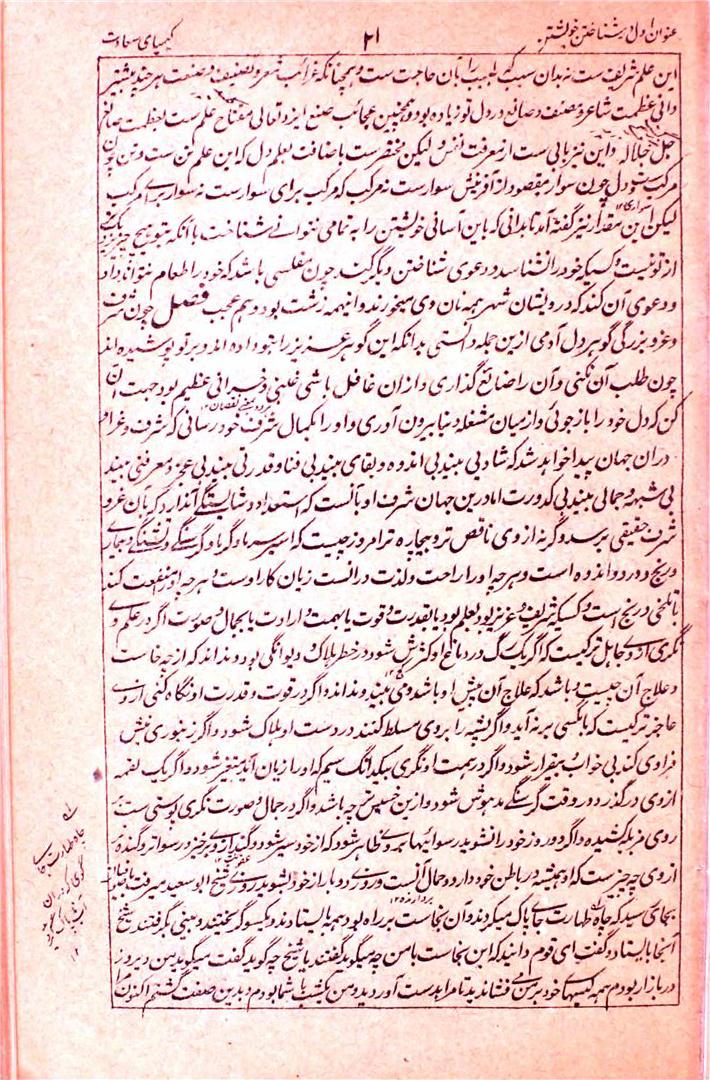 عنوان اول در شناختن خویشتن
۲۱
کیمیای سعادت
این علم شریف ست نه بدان سبب که طبیب را بآن حاجت ست و همچنانکه غرائب شعر و تصنیف و صنعت هر چند بیشتر
دانی عظمت شاعر و مصنف و صانع در دل تو زیاده بود و همچنین عجائب صنع ایزد تعالی مفتاح علم ست بعظمت صانع
جل جلاله و این نیز بابی ست از معرفت نفس و لیکن مختصرست باضافت بعلم دل که این علم تن ست و تن چون
مرکب ست و دل چون سوار و مقصود از آفرینش سوارست نه مرکب که مرکب برای سوارست نه سوار برای مرکب
لیکن این مقدار نیز گفته آمد تا بدانی که باین آسانی خویشتن را به تمامی نتوانی شناخت با آنکه بتو هیچ چیز نزدیک تر
از تو نیست و کسیکه خود را نشناسد و دعوی شناختن دیگر کند چون مفلسی باشد که خود را طعام نتواند داد
و دعوی آن کند که درویشان شهر همه نان وی میخورند و اینهمه زشت بود و هم عجب فصل چون شرف
و عز و بزرگی گوهر دل آدمی ازین جمله دانستی بدانکه این گوهر عزیز را بتو داده اند و بر تو پوشیده اند
چون طلب آن نکنی و آن را ضائع گذاری و ازان غافل باشی غبنی و خسرانی عظیم بود جهد آن
کن که دل خود را باز جوئی و از میان مشغله دنیا بیرون آوری و او را بکمال شرف خود رسانی که شرف و عز او
دران جهان پیدا خواهد شد که شادیی بیند بی اندوه و بقای بیند بی فنا و قدرتی بیند بی عجز و معرفتی بیند
بی شبهه و جمالی بیند بی کدورت اما درین جهان شرف او بآنست که استعداد و شایستگی آن دارد که بآن عز و
شرف حقیقی برسد و گرنه از وی ناقص تر و بیچاره تر امروز چیست که اسیر سرما و گرما و گرسنگی و تشنگی و بیماری
و رنج و درد و اندوه است و هر چه او را راحت و لذت درانست زیان کار اوست و هر چه او را منفعت کند
با تلخی و رنج است و کسیکه شریف و عزیز بود بعلم بود یا بقدرت و قوت یا بهمت و ارادت یا بجمال و صورت اگر در علم وی
نگری از وی جاهل تر کیست که اگر یک رگ در دماغ او کژ شود در خطر هلاک و دیوانگی بود و نداند که از چه خاست
و علاج آن چیست و باشد که علاج آن پیش او باشد و می بیند و نداند و اگر در قوت و قدرت او نگاه کنی از وی
عاجز تر کیست که با مگسی بر نه آید و اگر پشه را بروی مسلط کنند در دست او هلاک شود و اگر زنبوری نیش
فراوی کند بی خواب و بیقرار شود و اگر در همت او نگری بیک دانگ سیم که او را زیان آید متغیر شود و اگر یک لقمه
از وی در گذرد در وقت گرسنگی مدهوش شود و ازین خسیس تر چه باشد و اگر در جمال و صورت نگری پوستی ست بر
روی مزبله کشیده و اگر دو روز خود را نشوید رسوائیها بر وی ظاهر شود که از خود سیر شود و گند از وی برخیزد و رسواتر و گنده تر
از وی چه چیز ست که او همیشه در باطن خود دارد و حمال آنست و روزی دو بار از خود بشوید روزی شیخ ابو سعید میرفت با صوفیان
بجائی رسید که چاه طهارت جای پاک میکردند و آن نجاست بر راه بود همه بایستادند و یکسو گریختند و بینی بگرفتند شیخ
آنجا بایستاد و گفت ای قوم دانید که این نجاست با من چه میگوید گفتند یا شیخ چه گوید گفت میگوید من دیروز
در بازار بودم همه کیسهای خود بر من می فشاندید تا مرا بدست آوردید و من یکشب با شما بودم بدین صفت گشتم اکنون